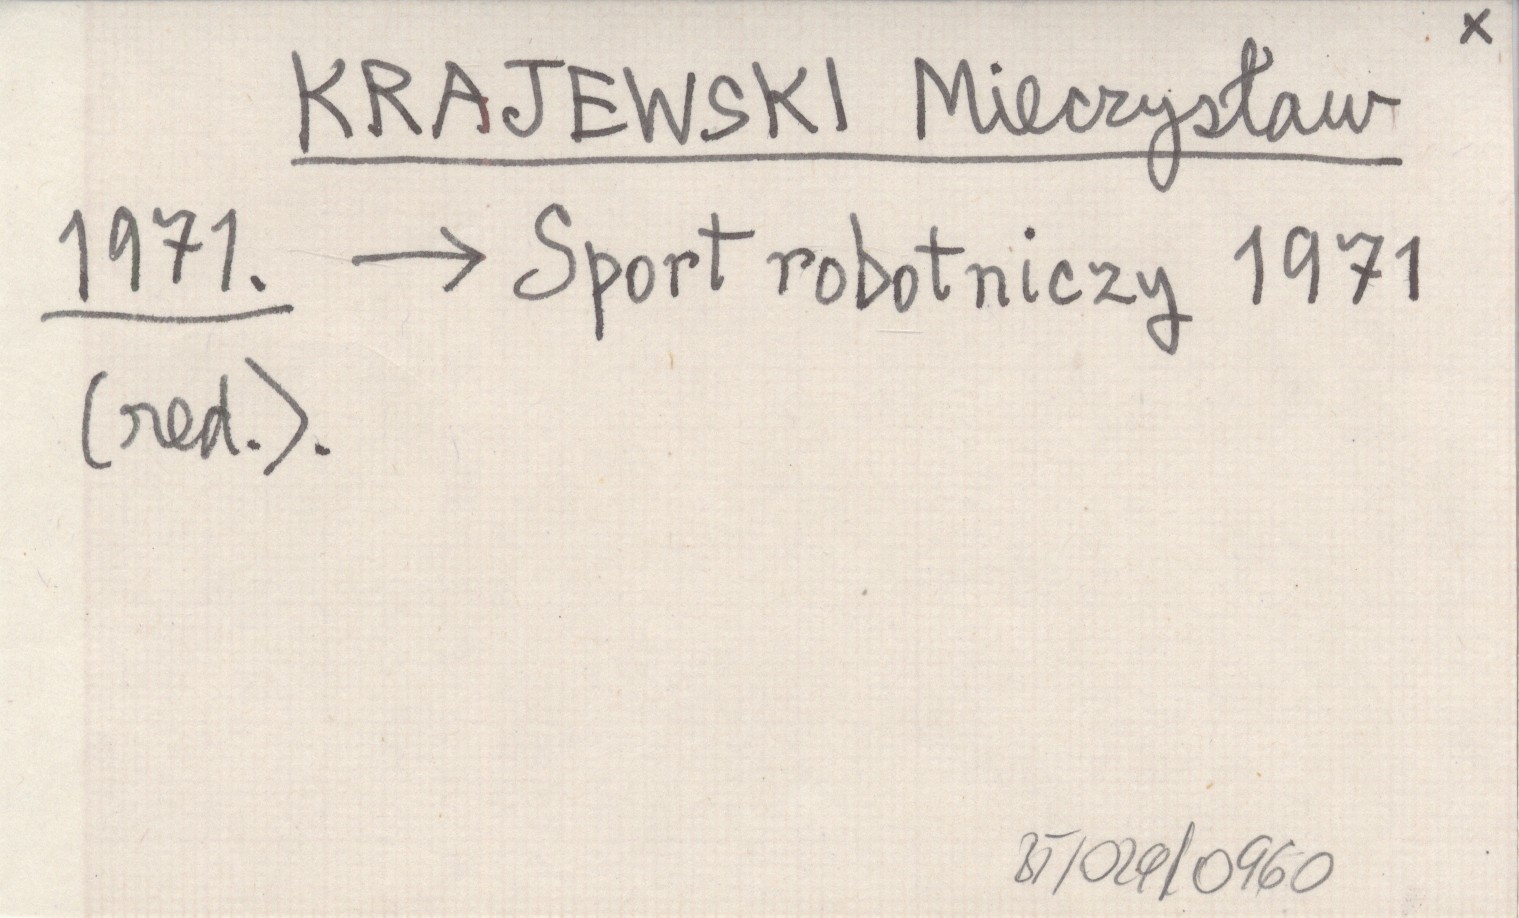 x
KRAJEWSKI Mieczysław
1971. → Sport robotniczy 1971
(red.).
BT/024/0960